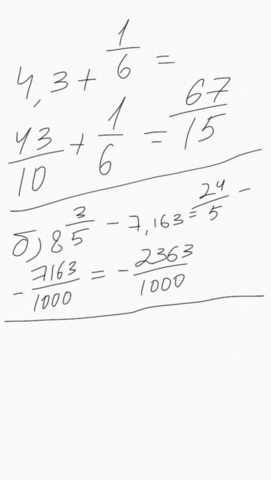 4,3 + 1/6 =
43/10 + 1/6 = 67/15
б) 8 3/5 - 7,163 = 24/5 -
- 7163/1000 = - 2363/1000